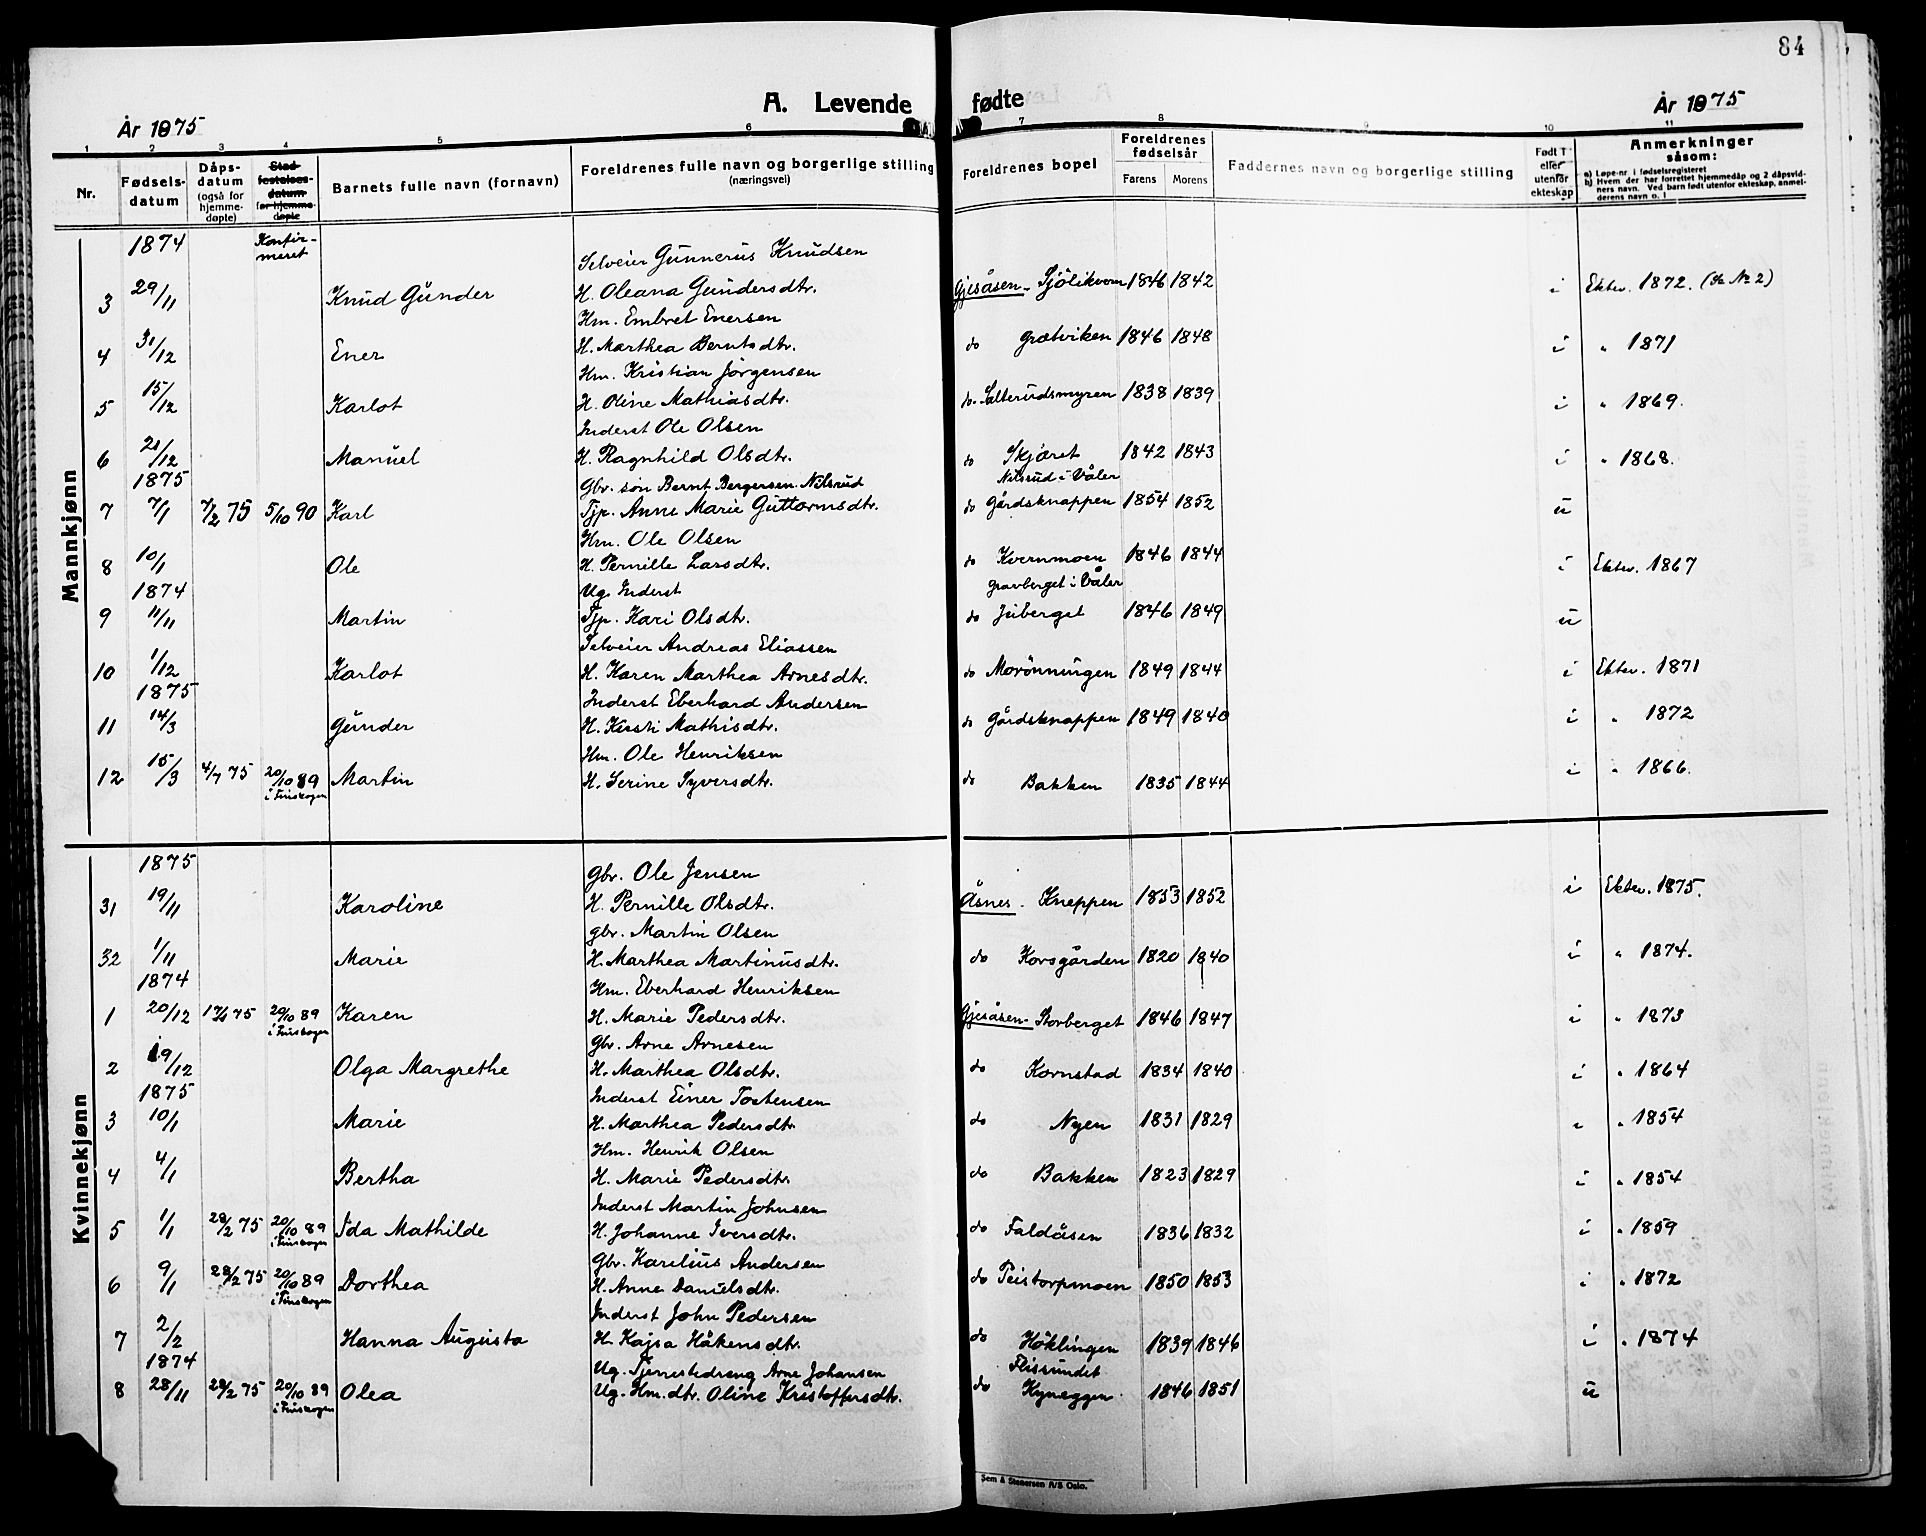 84
A. Levende fødte
År 1875
År 1875
1 2 3 4 5 6 7 8 9 10 11
Nr.
Fødselsdatum
Dåpsdatum (også for hjemmedøpte)
Stadfestelsesdatum for hjemmedøpte
Barnets fulle navn (fornavn)
Foreldrenes fulle navn og borgerlige stilling (næringsvei)
Foreldrenes bopel
Foreldrenes fødselsår
Farens Morens
Faddernes navn og borgerlige stilling
Født i eller utenfor ekteskap
Anmerkninger såsom:
a) Løpe-nr. i fødselsregisteret
b) Hvem der har forrettet hjemmedåp og 2 dåpsvidners navn. Ved barn født utenfor ekteskap, anmelderens navn o. l
Mannkjønn
1874 Konfirmeret Selveier Gunnerus Knudsen
3 29/11 Knud Gunder H. Oleana Gundersdtr. Gjesåsen - Sjölikvern 1846 1842 i Ektev. 1872. (se No 2)
Hm. Embret Enersen
4 31/12 Ener H. Marthea Berntsdtr. do Grætviken 1846 1848 i " 1871
Hm. Kristian Jörgensen
5 15/12 Karlot H. Oline Mathiasdtr. do. Sætterudsmyren 1838 1839 i " 1869.
Inderst Ole Olsen
6 21/12 Manuel H. Ragnhild Olsdtr. do Skjæret 1842 1843 i " 1868.
1875 Gbr. søn Bernt Bergersen Nilsrud Nilsrud i Våler
7 7/1 7/2 75 5/10 90 Karl Tjp. Anne Marie Guttormsdtr. do Gårdsknappen 1854 1852 u
Hm. Ole Olsen
8 10/1 Ole H. Pernille Larsdtr. do Kvernmoen 1846 1844 i Ektev. 1867
1874 Ug. Inderst Gravberget i Våler
9 11/11 Martin Tjp. Kari Olsdtr. do Juberget 1846 1849 u
Selveier Andreas Eliassen
10 1/12 Karlot H. Karen Marthea Arnesdtr. do Morönningen 1849 1844 i Ektev. 1871
1875 Inderst Eberhard Andersen
11 14/3 Gunder H. Kersti Mathisdtr. do Gårdsknappen 1849 1840 i " 1872
Hm. Ole Henriksen
12 15/3 4/7 75 20/10 89 i Finskogen Martin H. Serine Syversdtr. do Bakken 1835 1844 i " 1866.
Kvinnekjønn
1875 Gbr. Ole Jensen
31 19/11 Karoline H. Pernille Olsdtr. Åsnes - Kneppen 1853 1852 i Ektev. 1875.
Gbr. Martin Olsen
32 1/11 Marie H. Marthea Martinusdtr. do Korsgården 1820 1840 i " 1874.
1874 Hm. Eberhard Henriksen
1 20/12 75 20/10 89 i Finskogen Karen H. Marie Pedersdtr. Gjesåsen - Storberget 1846 1847 i " 1873
Gbr. Arne Arnesen
2 19/12 Olga Margrethe H. Marthea Olsdtr. do Kornstad 1834 1840 i " 1864
1875 Inderst Einer Tostensen
3 10/1 Marie H. Marthea Pedersdtr do Nyen 1831 1829 i " 1854
Hm. Henrik Olsen
4 4/1 Bertha H. Marie Pedersdtr. do Bakken 1823 1829 i " 1854
Inderst Martin Johnsen
5 1/1 28/2 75 20/10 89 i Finskogen Ida Mathilde H. Johanne Iversdtr. do Faldåsen 1836 1832 i " 1859
Gbr. Karelius Andersen
6 9/1 28/2 75 20/10 89 i Finskogen Dorthea H. Anne Danielsdtr. do Peistorpmoen 1850 1853 i " 1872
Inderst John Pedersen
7 2/2 Hanna Augusta H. Kajsa Håkensdtr. do Höklingen 1839 1846 i " 1874
1874 Ug. Tjenestedreng Arne Johansen Flissundet
8 28/11 28/2 75 20/10 89 i Finskogen Olea Ug. Hm. dtr. Oline Kristoffersdtr. do Kyneggen 1846 1851 u
Sem & Stenersen A/S Oslo.